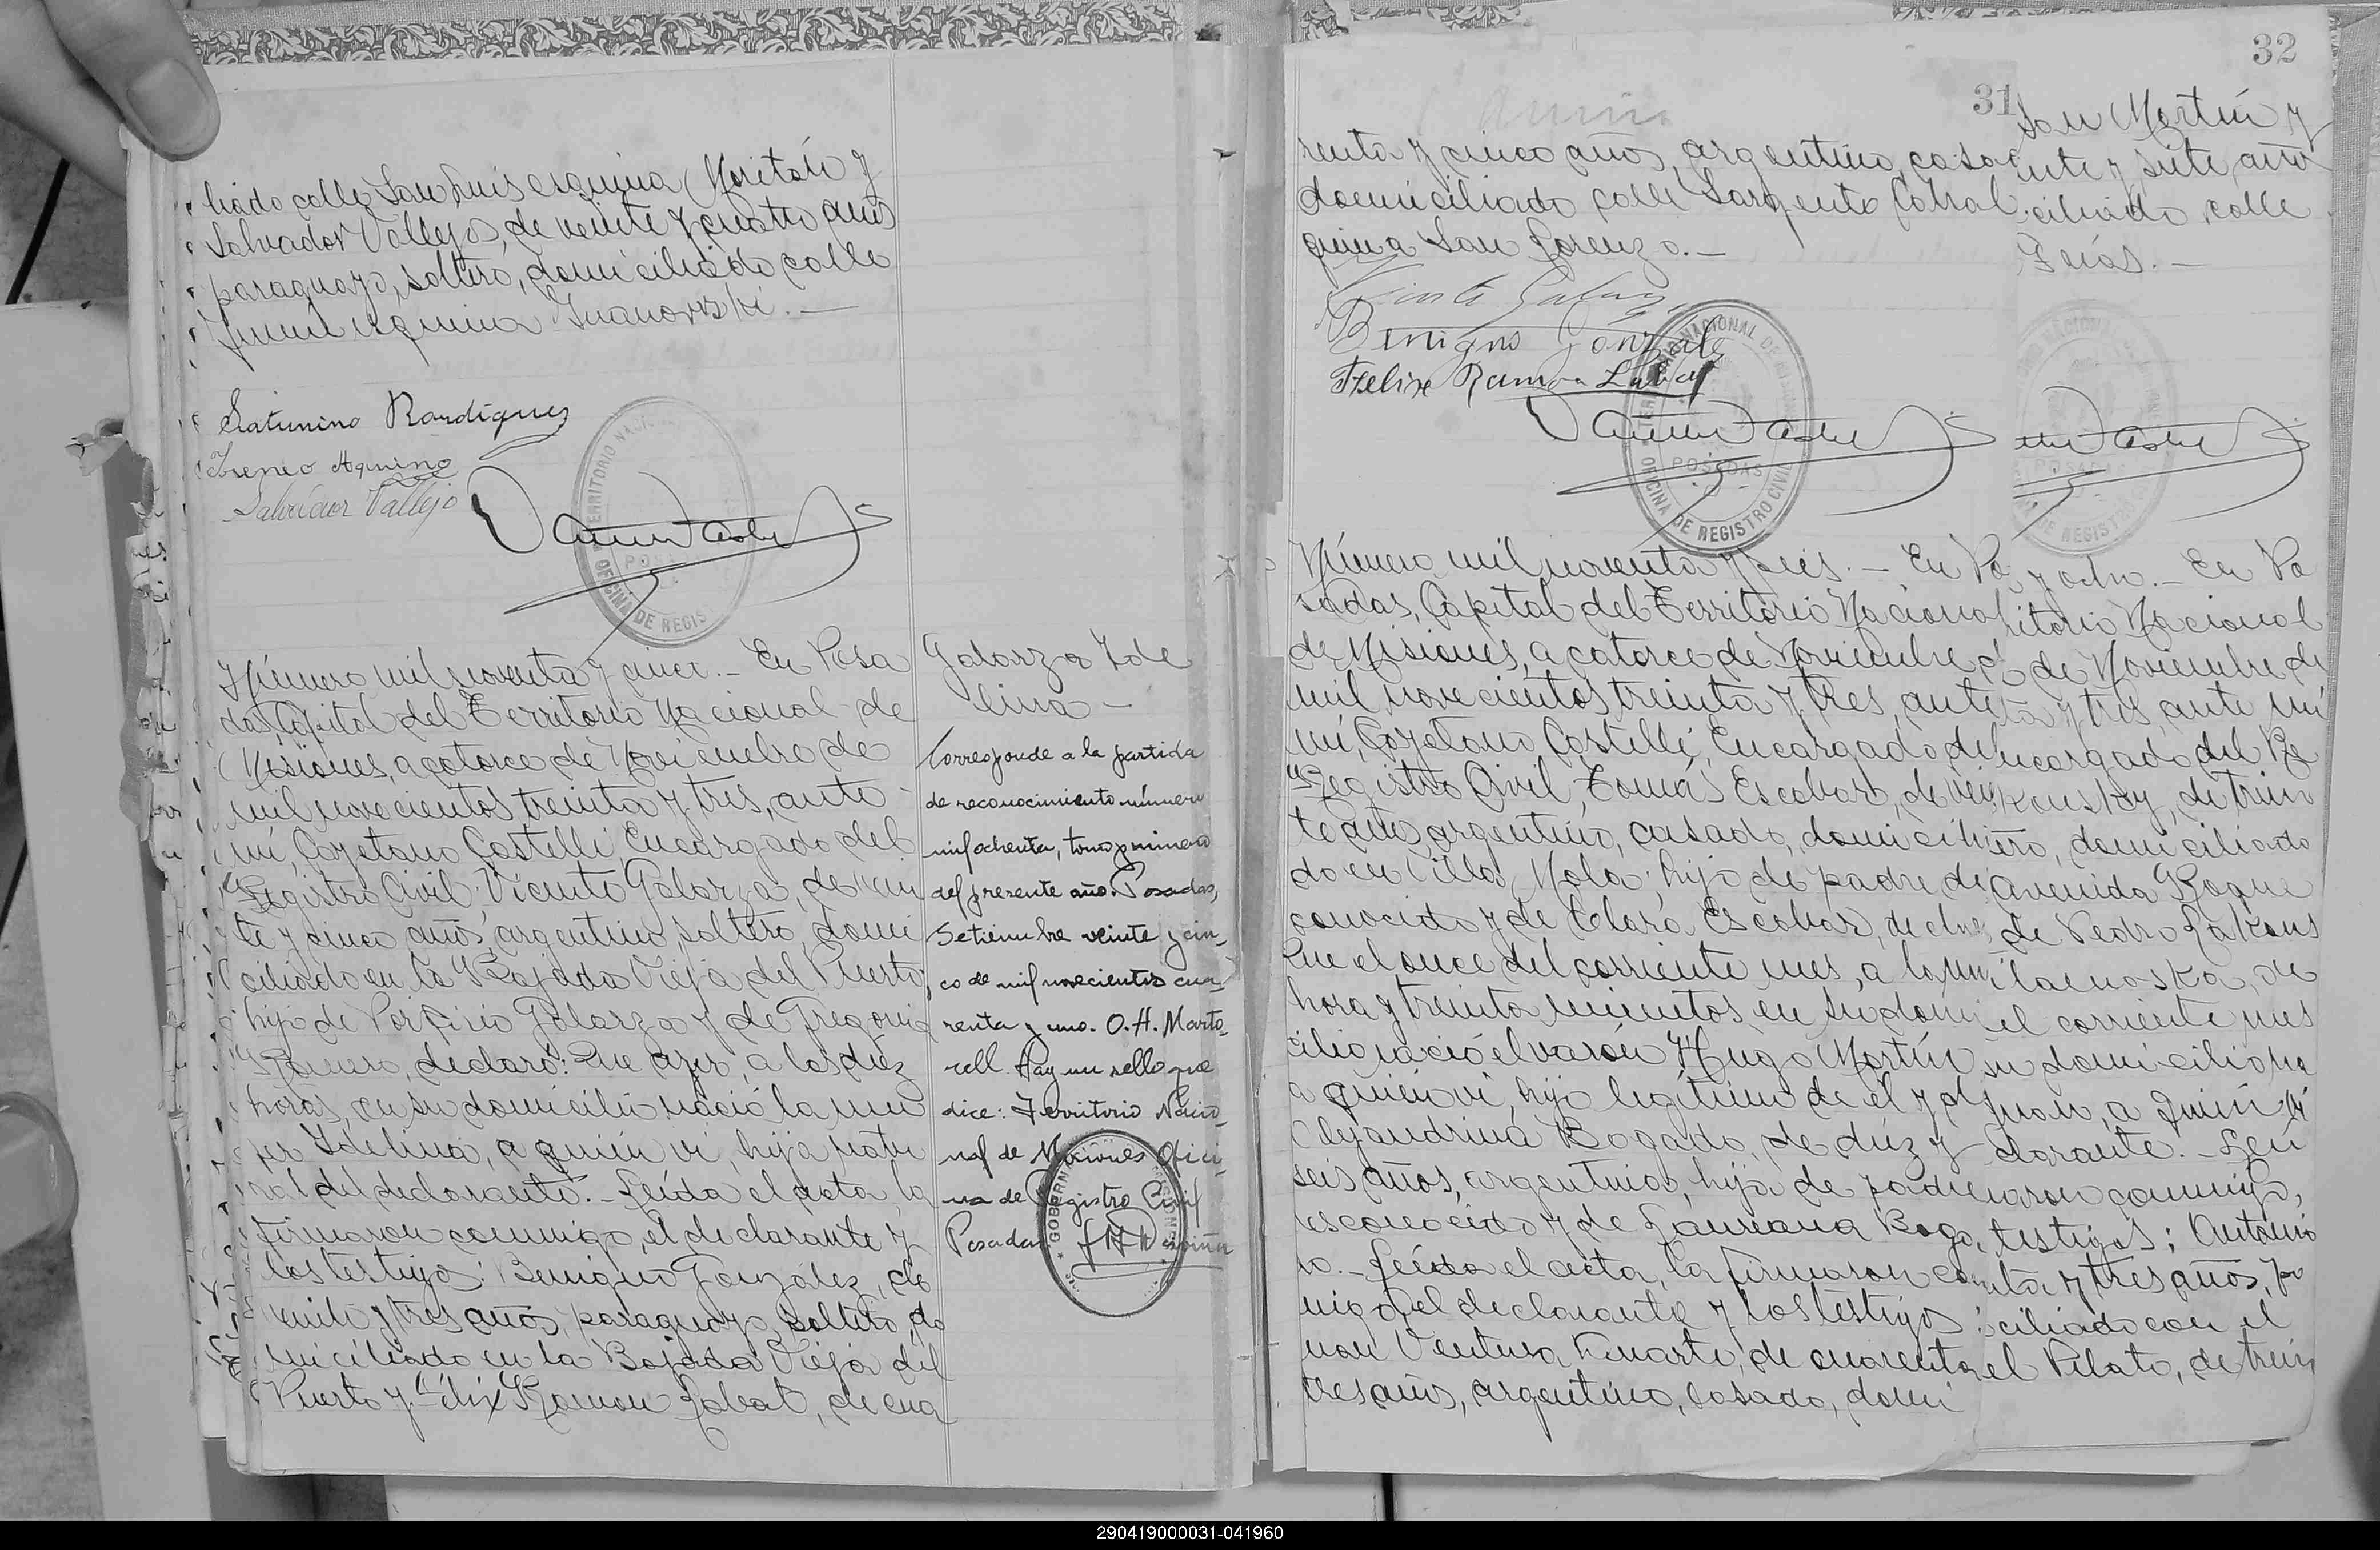 liado calle San Luis esquina Moritán y
Salvador Vallejos, de veinte y cuatro años
paraguayo, soltero, domiciliado calle
Junín esquina Ivanowski.—
Saturnino Rordíguez
Ireneo Aquino
Salvador Vallejo
TERRITORIO NAC
POSADAS
OFICINA DE REGIS
Número mil noventa y cinco.— En Posa
das, Capital del Territorio Nacional de
Misiones, a catorce de Noviembre de
mil novecientos treinta y tres, ante
mí, Cayetano Castelli, Encargado del
Registro Civil, Vicente Galarza, de vein
te y cinco años, argentino, soltero, domi
ciliado en la Bajada Vieja del Puerto,
hijo de Porfirio Galarza y de Gregoria
Romero, declaró: Que ayer, a las diez
horas, en su domicilio nació la mu
jer Idelina, a quién vi, hija natu
ral del declarante.— Leída el acta, la
firmaron conmigo, el declarante y
los testigos: Benigno González, de
veinte y tres años, paraguayo, soltero, do
miciliado en la Bajada Vieja del
Puerto y Félix Ramon Labat, de cua
Galarza Ide
lina —
Corresponde a la partida
de reconocimiento número
mil ochenta, tomo primero
del presente año. Posadas,
Setiembre veinte y cin-
co de mil novecientos cua-
renta y uno. O. H. Marto-
rell. Hay un sello que
dice: Territorio Nacio-
nal de Misiones Ofici-
na de Registro Civil
Posadas
31
renta y cinco años, argentino, casa
domiciliado calle Sargento Cabral
quina San Lorenzo.—
Vicente Galarza
Benigno González
Felix Ramon Labat
TERRITORIO NACIONAL DE MISIONES
POSADAS
OFICINA DE REGISTRO CIVIL
Número mil noventa y seis.— En Po
sadas, Capital del Territorio Nacional
de Misiones, a catorce de Noviembre d
mil novecientos treinta y tres, ante
mí, Cayetano Castelli, Encargado del
Registro Civil, Tomás Escobar, de vein
te años, argentino, casado, domicilia
do en Villa Mola, hijo de padre des
conocido y de Clara Escobar, declaró
Que el once del corriente mes, a la una
hora y treinta minutos en su domi
cilio nació el varón Hugo Martín
a quién vi, hijo legítimo de él y de
Alejandrina Bogado, de diez y
seis años, argentina, hija de padre
desconocido y de Lauriana Boga
do.— Leída el acta, la firmaron con
migo el declarante y los testigos:
Ventura Duarte, de cuarenta
tres años, argentino, casado, domi
32
San Martín y
inte y siete años
ciliado calle
Frías.—
y ocho.— En Po
itorio Nacional
de Noviembre de
ta y tres, ante mí
ncargado del Re
de trein
tero, domiciliado
avenida Roque
de Pedro
de
el corriente mes
su domicilio na
Juan, a quién vi
clarante.— Leí
maron conmigo,
testigos: Antonio
nta y tres años, po
ciliado con el
el Pilato, de trein
290419000031-041960